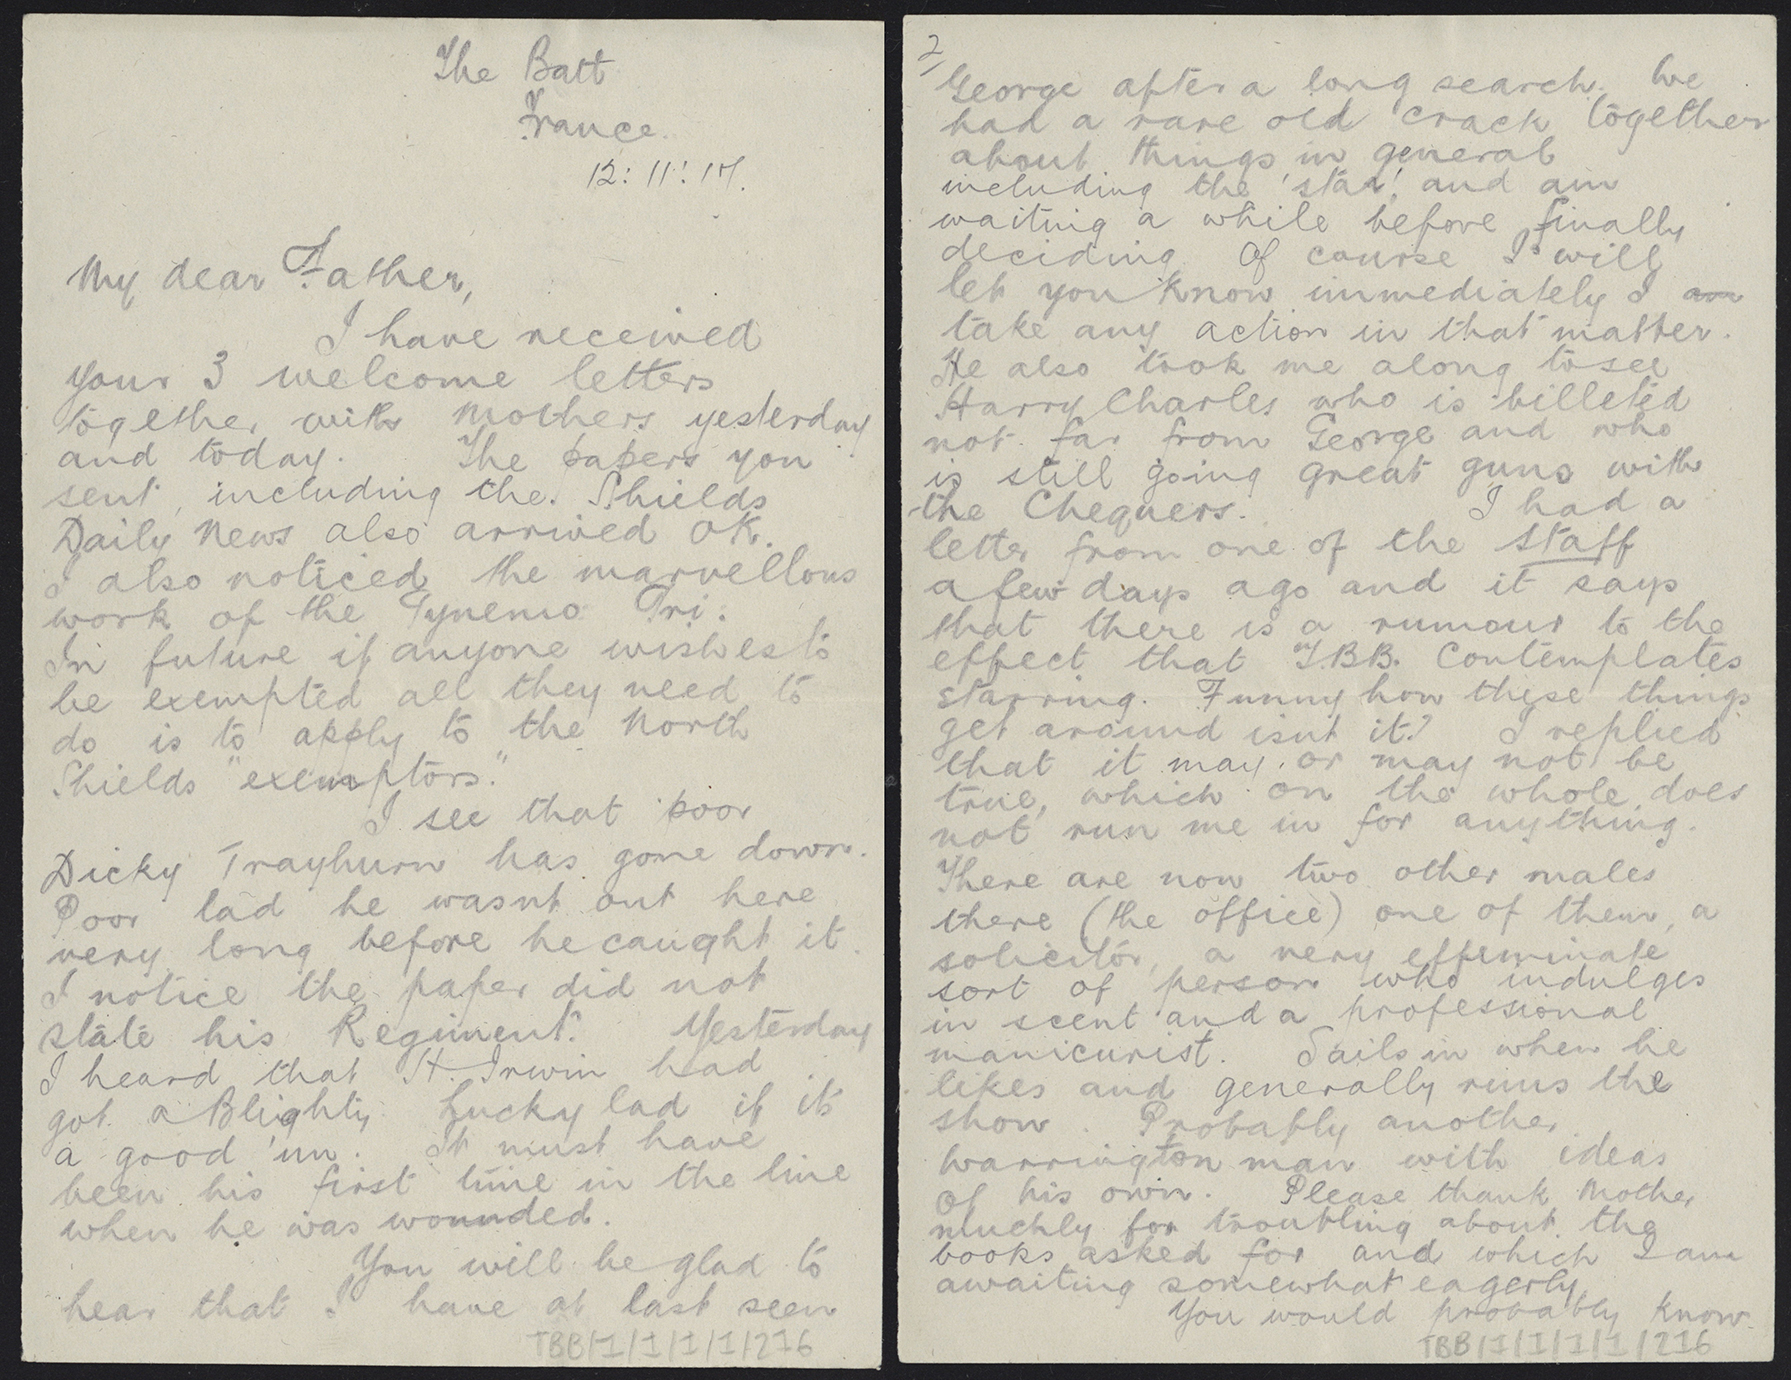 The Batt
France.
12:11:17.
My dear Father,
I have received
your 3 welcome letters
together with Mothers yesterday
and today. The papers you
sent, including the Shields
Daily News also arrived OK.
I also noticed the marvellous
work of the Tynemo Tri.
In future if anyone wishes to
be exempted all they need to
do is to apply to the North
Shields "exemptors."
I see that poor
Dicky Trayhurn has gone down.
Poor lad he wasnt out here
very long before he caught it.
I notice the paper did not
state his Regiment. Yesterday
I heard that H. Irwin had
got a Blighty. Lucky lad if its
a good 'un. It must have
been his first time in the line
when he was wounded.
You will be glad to
hear that I have at last seen
TBB/1/1/1/1/216
2/
George after a long search. We
had a rare old crack together
about things in general
including the 'star' and am
waiting a while before finally
deciding. Of course I will
let you know immediately I am
take any action in that matter.
He also took me along to see
Harry Charles who is billeted
not far from George and who
is still going great guns with
the Chequers. I had a
letter from one of the staff
a few days ago and it says
that there is a rumour to the
effect that T.B.B. contemplates
starring. Funny how these things
get around isnt it? I replied
that it may or may not be
true, which on the whole does
not run me in for anything.
There are now two other males
there (the office) one of them, a
solicitor, a very effeminate
sort of person who indulges
in scent and a professional
manicurist. Sails in when he
likes and generally runs the
show. Probably another
Warrington man with ideas
of his own. Please thank Mother
muchly for troubling about the
books asked for and which I am
awaiting somewhat eagerly.
You would probably know
TBB/1/1/1/1/216